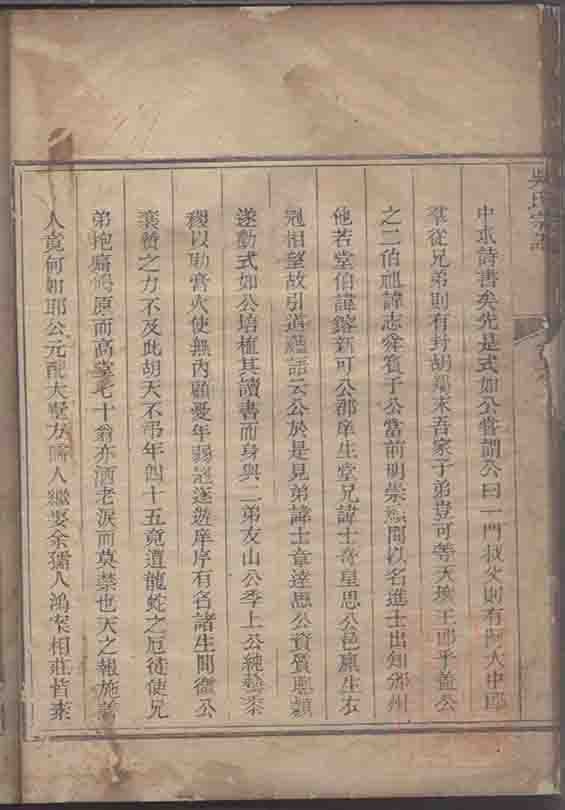 吳氏宗譜
中求詩書矣先是式如公嘗謂公曰一門叔父則有阿大中郎
羣從兄弟則有封胡羯末吾家子弟豈可等天壤王郎乎蓋公
之二伯祖諱志賓于公當前明崇禎間以名進士出知州
他若堂伯諱鎔新可公郡庠生堂兄諱士奇星思公邑廩生衣
冠相望故引道韞語云公於是見弟諱士章逵思公資質穎
遂勸式如公培植其讀書而身與二弟友山公季上公純藝黍
稷以助膏火使無內顧憂年弱冠遂遊庠序有名諸生間微公
襄贊之力不及此胡天不弔年四十五竟遭龍蛇之厄徒使兄
弟抱痛鴒原而高堂七十翁亦洒老淚而莫禁也天之報施善
人竟何如耶公元配大墅方孺人繼娶余孺人鴻案相莊皆素